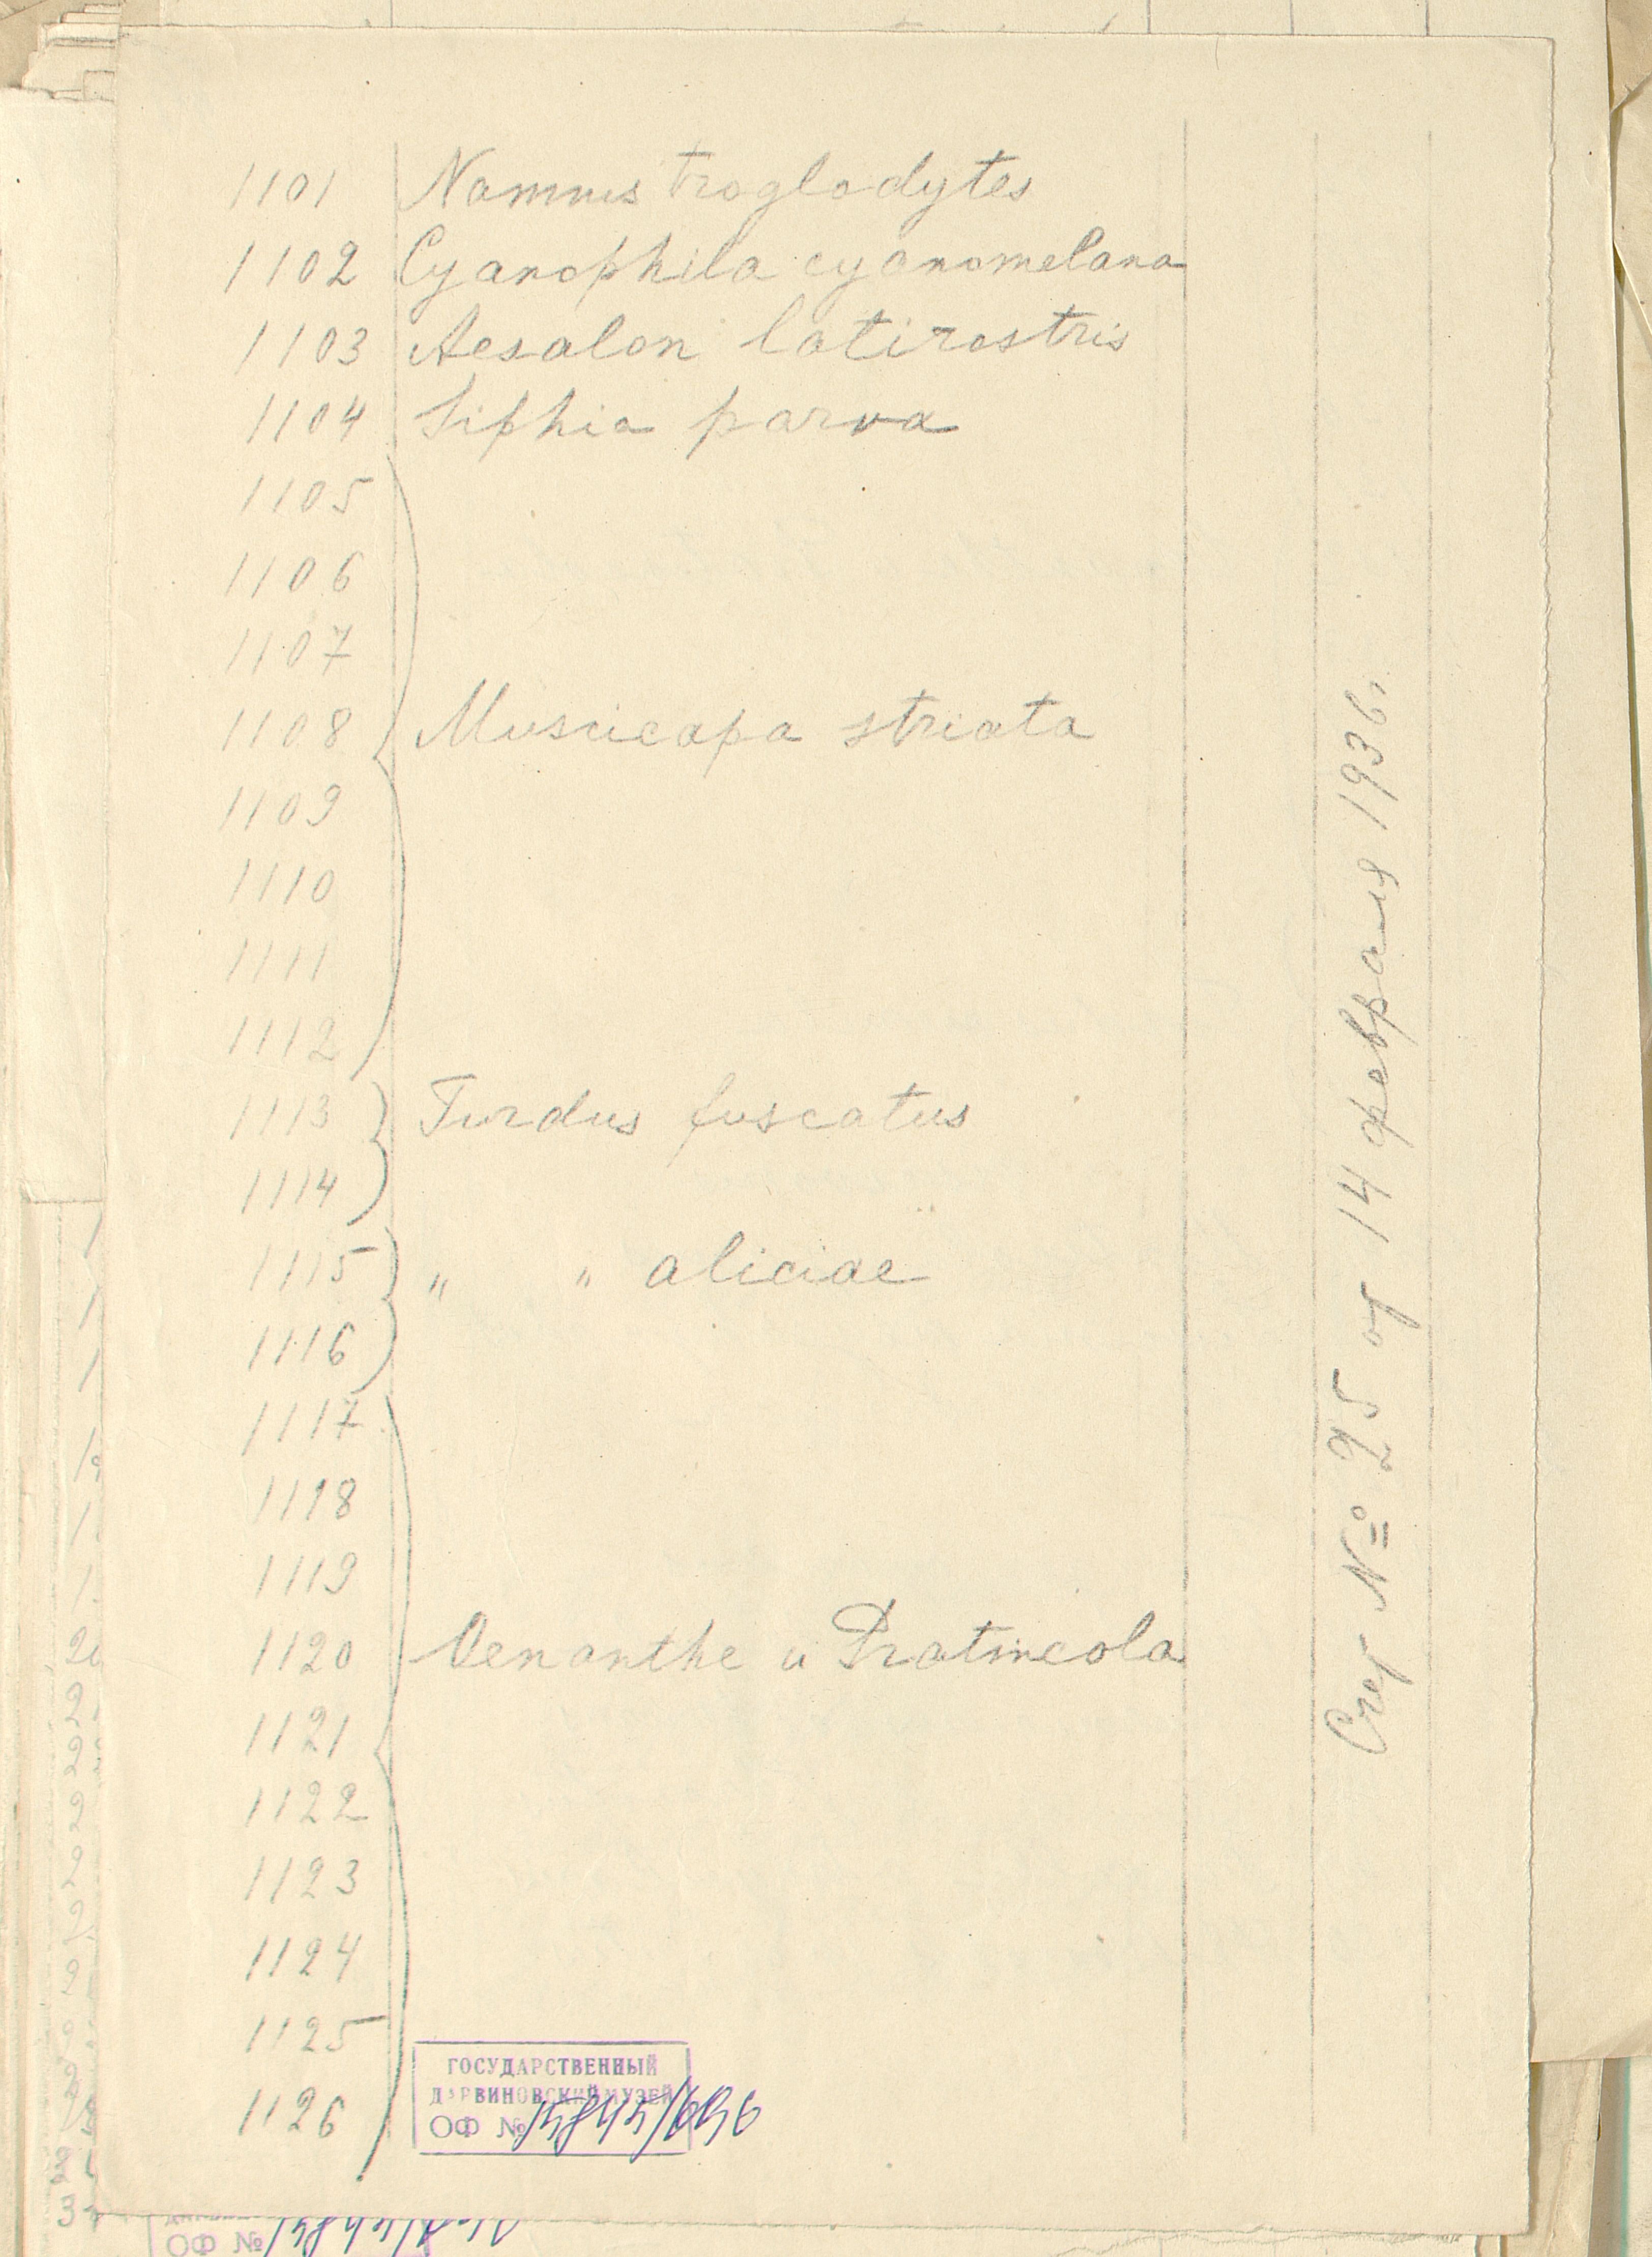 1101 Namnus troglodytes
1102 Cyanophila cyanomelana
1103 Aesalon latirostris
1104 Siphia parva
1105
1106
1107
1108 Muscicapa striata
1109
1110
1111
1112
1113 Turdus fuscatus
1114
1115 " " aliciae
1116
1117
1118
1119
1120 Oenanthe и Pratincola
1121
1122
1123
1124
1125
1126
Счет № 25 от 14 февраля 1936 г.
ГОСУДАРСТВЕННЫЙ
ДАРВИНОВСКИЙ МУЗЕЙ
ОФ №
ОФ №